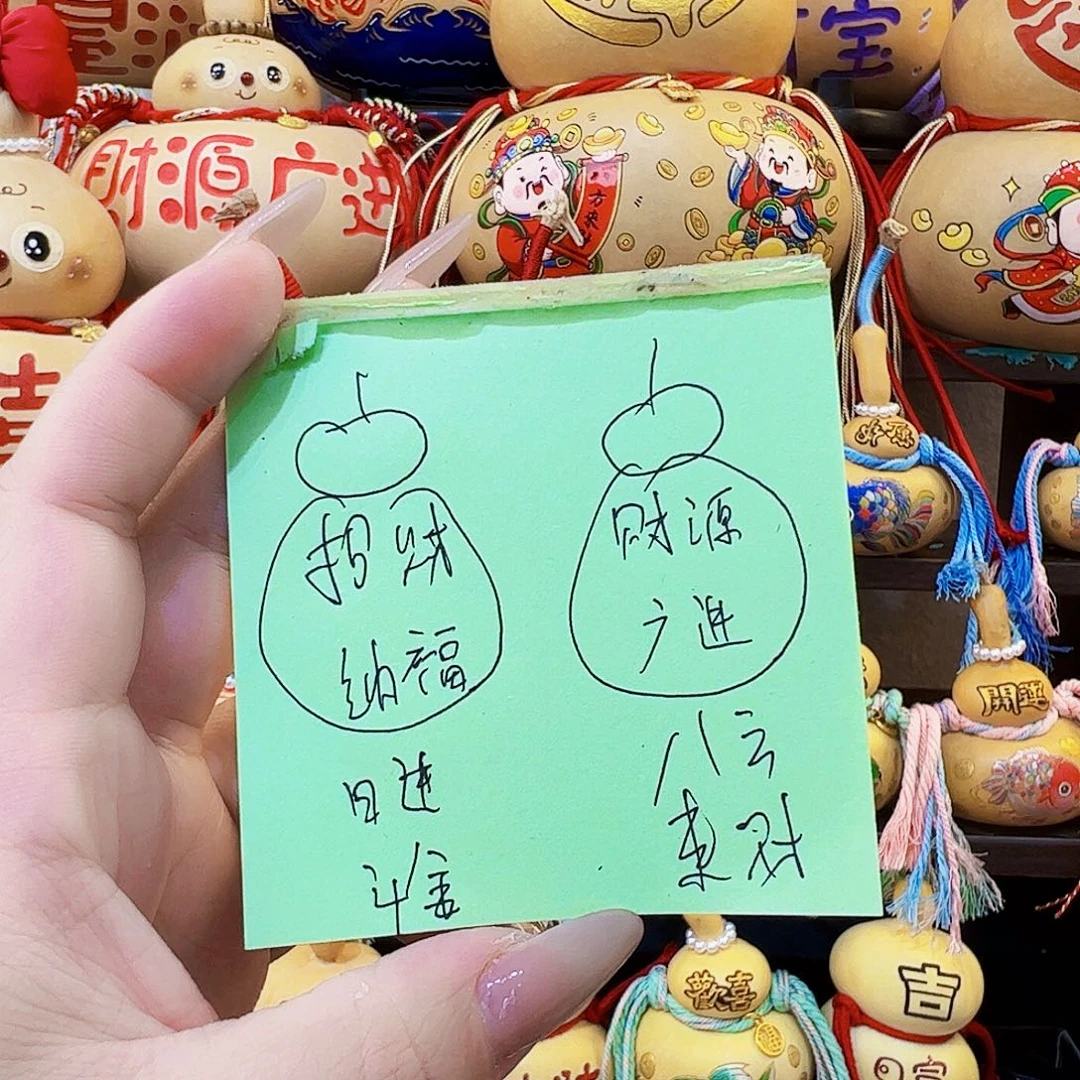 宝
财源广进
方来
好运
開運
招财
纳福
日进
斗金
财源
广进
八方
来财
歡喜
吉